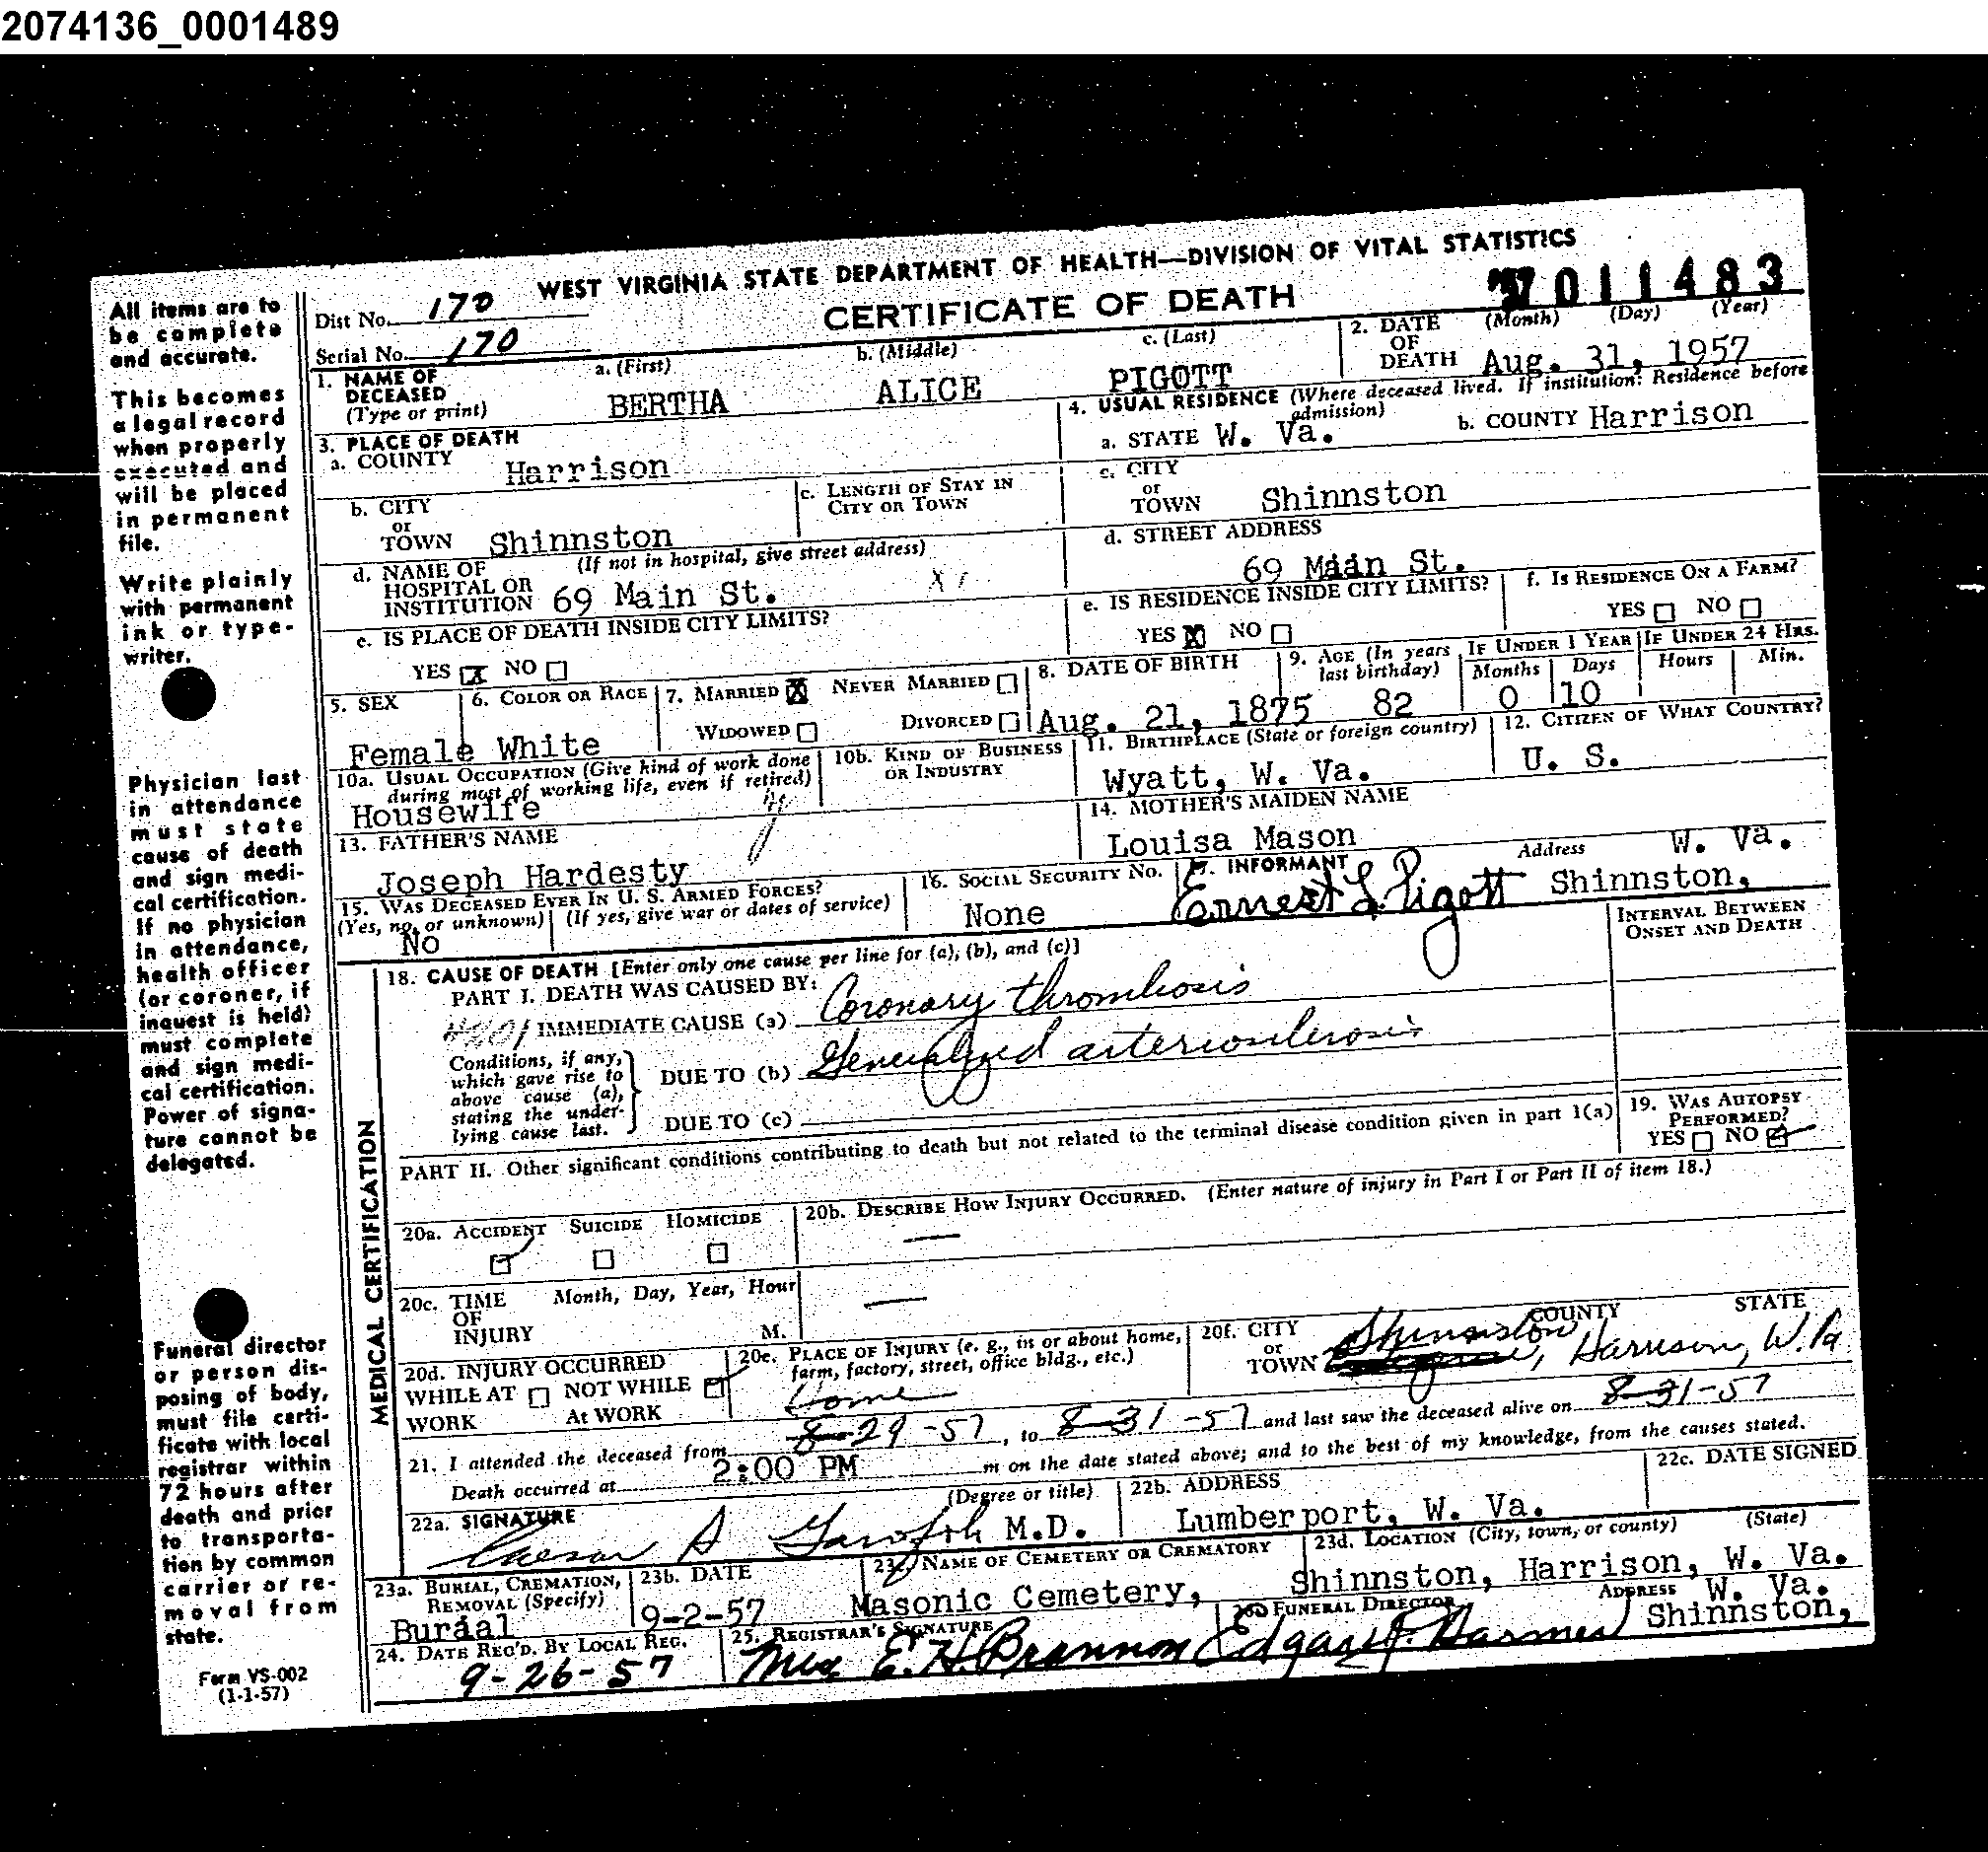 2074136_0001489
WEST VIRGINIA STATE DEPARTMENT OF HEALTH—DIVISION OF VITAL STATISTICS
CERTIFICATE OF DEATH
57 011483
Dist No. 170
Serial No. 170
All items are to
be complete
and accurate.
This becomes
a legal record
when properly
executed and
will be placed
in permanent
file.
Write plainly
with permanent
ink or type-
writer.
Physician last
in attendance
must state
cause of death
and sign medi-
cal certification.
If no physician
in attendance,
health officer
(or coroner, if
inquest is held)
must complete
and sign medi-
cal certification.
Power of signa-
ture cannot be
delegated.
Funeral director
or person dis-
posing of body,
must file certi-
ficate with local
registrar within
72 hours after
death and prior
to transporta-
tion by common
carrier or re-
moval from
state.
Form VS-002
(1-1-57)
1. NAME OF DECEASED (Type or print)
a. (First) BERTHA
b. (Middle) ALICE
c. (Last) PIGOTT
2. DATE OF DEATH (Month) (Day) (Year) Aug. 31, 1957
3. PLACE OF DEATH
a. COUNTY Harrison
b. CITY or TOWN Shinnston
c. LENGTH OF STAY IN CITY OR TOWN
d. NAME OF HOSPITAL OR INSTITUTION (If not in hospital, give street address) 69 Main St.
e. IS PLACE OF DEATH INSIDE CITY LIMITS?
YES X NO
4. USUAL RESIDENCE (Where deceased lived. If institution: Residence before admission)
a. STATE W. Va. b. COUNTY Harrison
c. CITY or TOWN Shinnston
d. STREET ADDRESS
69 Main St.
e. IS RESIDENCE INSIDE CITY LIMITS?
YES X NO
f. IS RESIDENCE ON A FARM?
YES NO
5. SEX Female
6. COLOR OR RACE White
7. MARRIED X NEVER MARRIED
WIDOWED DIVORCED
8. DATE OF BIRTH Aug. 21, 1875
9. AGE (In years last birthday) 82
IF UNDER 1 YEAR Months 0 Days 10
IF UNDER 24 HRS. Hours Min.
10a. USUAL OCCUPATION (Give kind of work done during most of working life, even if retired)
Housewife
10b. KIND OF BUSINESS OR INDUSTRY
11. BIRTHPLACE (State or foreign country)
Wyatt, W. Va.
12. CITIZEN OF WHAT COUNTRY?
U. S.
13. FATHER'S NAME
Joseph Hardesty
14. MOTHER'S MAIDEN NAME
Louisa Mason
15. WAS DECEASED EVER IN U. S. ARMED FORCES?
(Yes, no, or unknown) (If yes, give war or dates of service)
No
16. SOCIAL SECURITY NO.
None
17. INFORMANT Address
Ernest L. Pigott Shinnston, W. Va.
18. CAUSE OF DEATH [Enter only one cause per line for (a), (b), and (c)]
INTERVAL BETWEEN ONSET AND DEATH
PART I. DEATH WAS CAUSED BY:
4201 IMMEDIATE CAUSE (a) Coronary thrombosis
Conditions, if any, which gave rise to above cause (a), stating the underlying cause last.
DUE TO (b) Generalized arteriosclerosis
DUE TO (c)
PART II. Other significant conditions contributing to death but not related to the terminal disease condition given in part 1(a)
19. WAS AUTOPSY PERFORMED?
YES NO
MEDICAL CERTIFICATION
20a. ACCIDENT SUICIDE HOMICIDE
20b. DESCRIBE HOW INJURY OCCURRED. (Enter nature of injury in Part I or Part II of item 18.)
20c. TIME OF INJURY Month, Day, Year, Hour M.
20d. INJURY OCCURRED
WHILE AT WORK NOT WHILE At WORK
20e. PLACE OF INJURY (e. g., in or about home, farm, factory, street, office bldg., etc.)
Home
20f. CITY or TOWN COUNTY STATE
Shinnston, Harrison, W. Va
21. I attended the deceased from 8-29-57, to 8-31-57 and last saw the deceased alive on 8-31-57
Death occurred at 2:00 PM m on the date stated above; and to the best of my knowledge, from the causes stated.
22a. SIGNATURE (Degree or title)
Caesar A M.D.
22b. ADDRESS
Lumberport, W. Va.
22c. DATE SIGNED
23a. BURIAL, CREMATION, REMOVAL (Specify)
Burial
23b. DATE
9-2-57
23c. NAME OF CEMETERY OR CREMATORY
Masonic Cemetery,
23d. LOCATION (City, town, or county) (State)
Shinnston, Harrison, W. Va.
24. DATE REC'D. BY LOCAL REG.
9-26-57
25. REGISTRAR'S SIGNATURE
E. H. Brannon
FUNERAL DIRECTOR ADDRESS
Edgar Harmer Shinnston, W. Va.